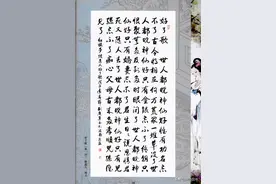 好了歌 世人都晓神仙好惟有功名忘
不了古今将相在何方荒冢一堆草没了世
人都晓神仙好只有金银忘不了终朝只
恨聚无多及到多时眼闭了世人都晓神仙
好只有娇妻忘不了君生日日说恩情君
死又随人去了世人都晓神仙好只有儿
孙忘不了痴心父母古来多孝顺儿孙谁
见了